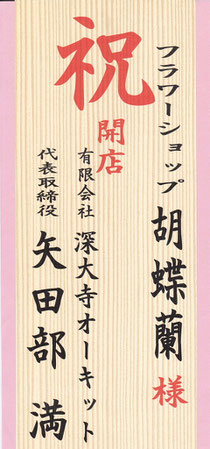 祝
開店
フラワーショップ 胡蝶蘭 様
有限会社 深大寺オーキット
代表取締役 矢田部 満